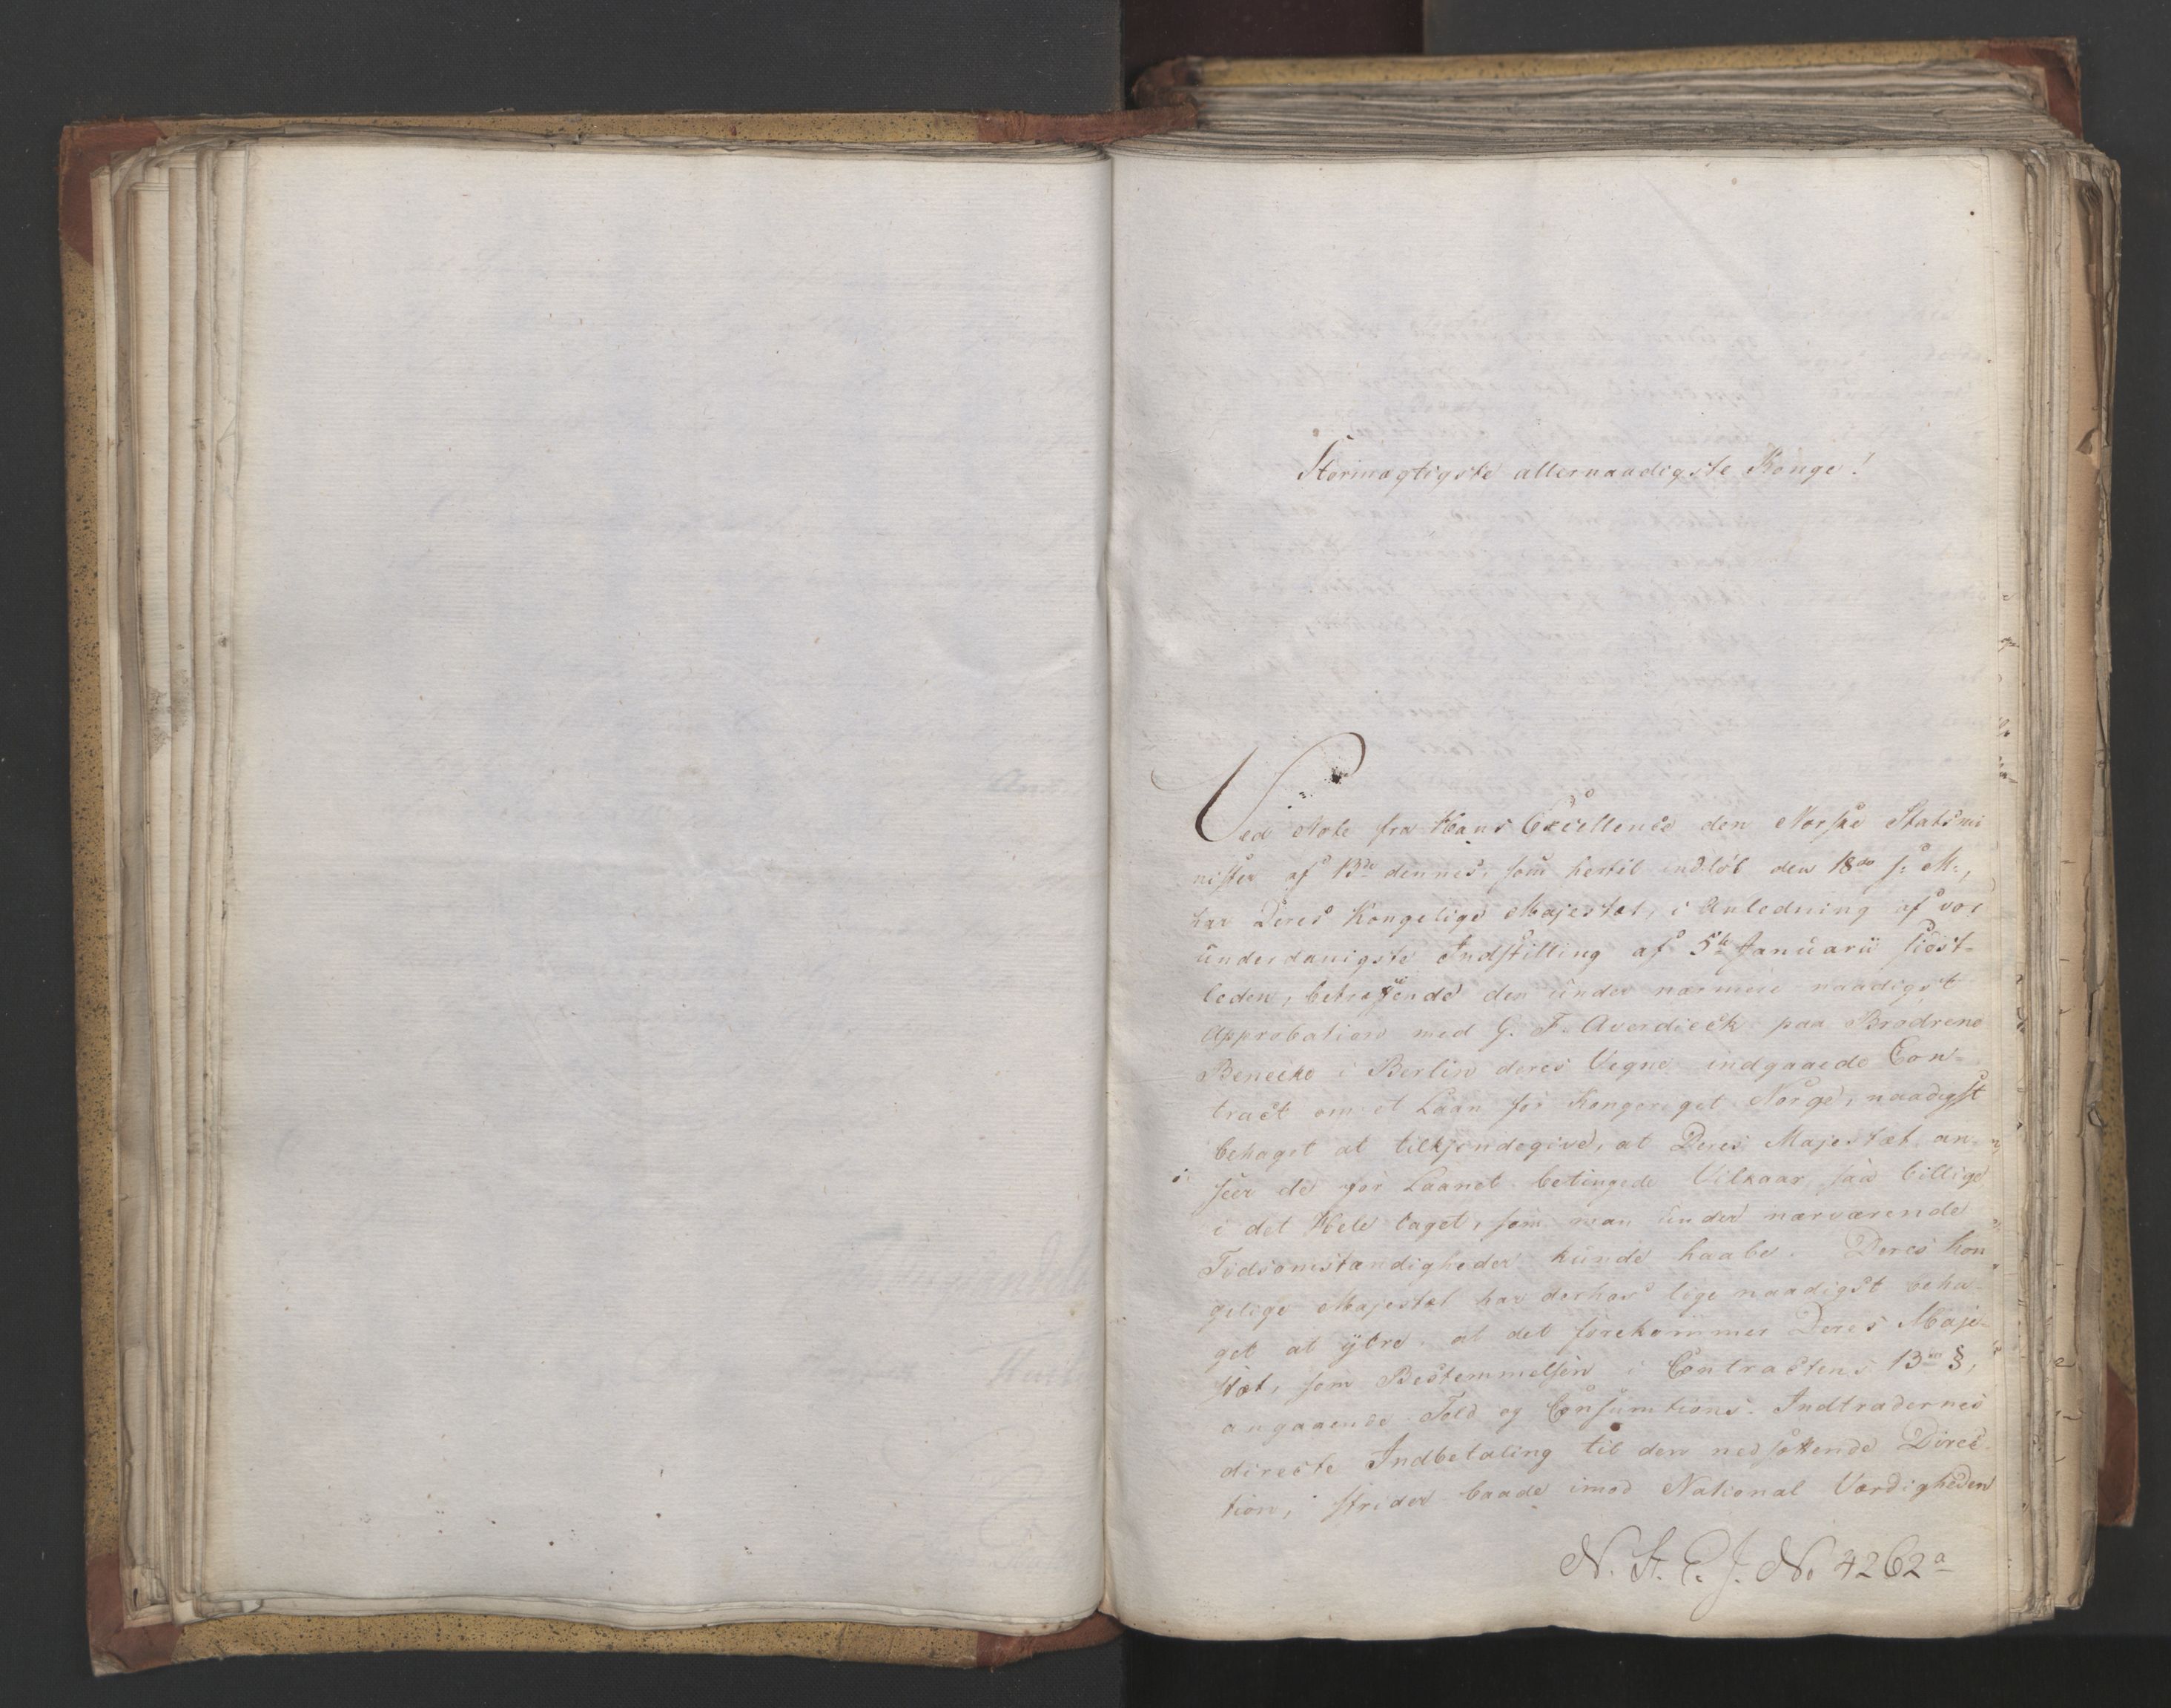 Stormægtigste allernaadigste Konge!
Ved Note fra Hans Excellence den Norske Statsmi
nister af 13de dennes, som hertil indløb den 18de s: M:,
har Deres Kongelige Majestæt, i Anledning af vor
underdanigste Indstilling af 5te Januarii sidst-
leden, betreffende den under nærmere naadigst
Approbation med G. F. Averdieck paa Brødrene
Benecke i Berlin deres Vegne indgaaede Con-
tract om et Laan for Kongeriget Norge, naadigst
behaget at tilkjendegive, at Deres Majestæt an-
seer de for Laanet betingede Vilkaar saa billige
i det Hele taget, som man under nærværende
Tidsomstændigheder kunde haabe. Deres Kon
gelige Majestæt har derhos lige naadigst beha-
get at yttre, at det forekommer Deres Maje-
stæt, som Bestemmelsen i Contractens 13de §,
angaaende Told og Consumtions-Indtrædernes
directe Indbetaling til den nedsættende Direc-
tion, strider baade imod National Værdigheden
N. St. C. J. No 4262 a